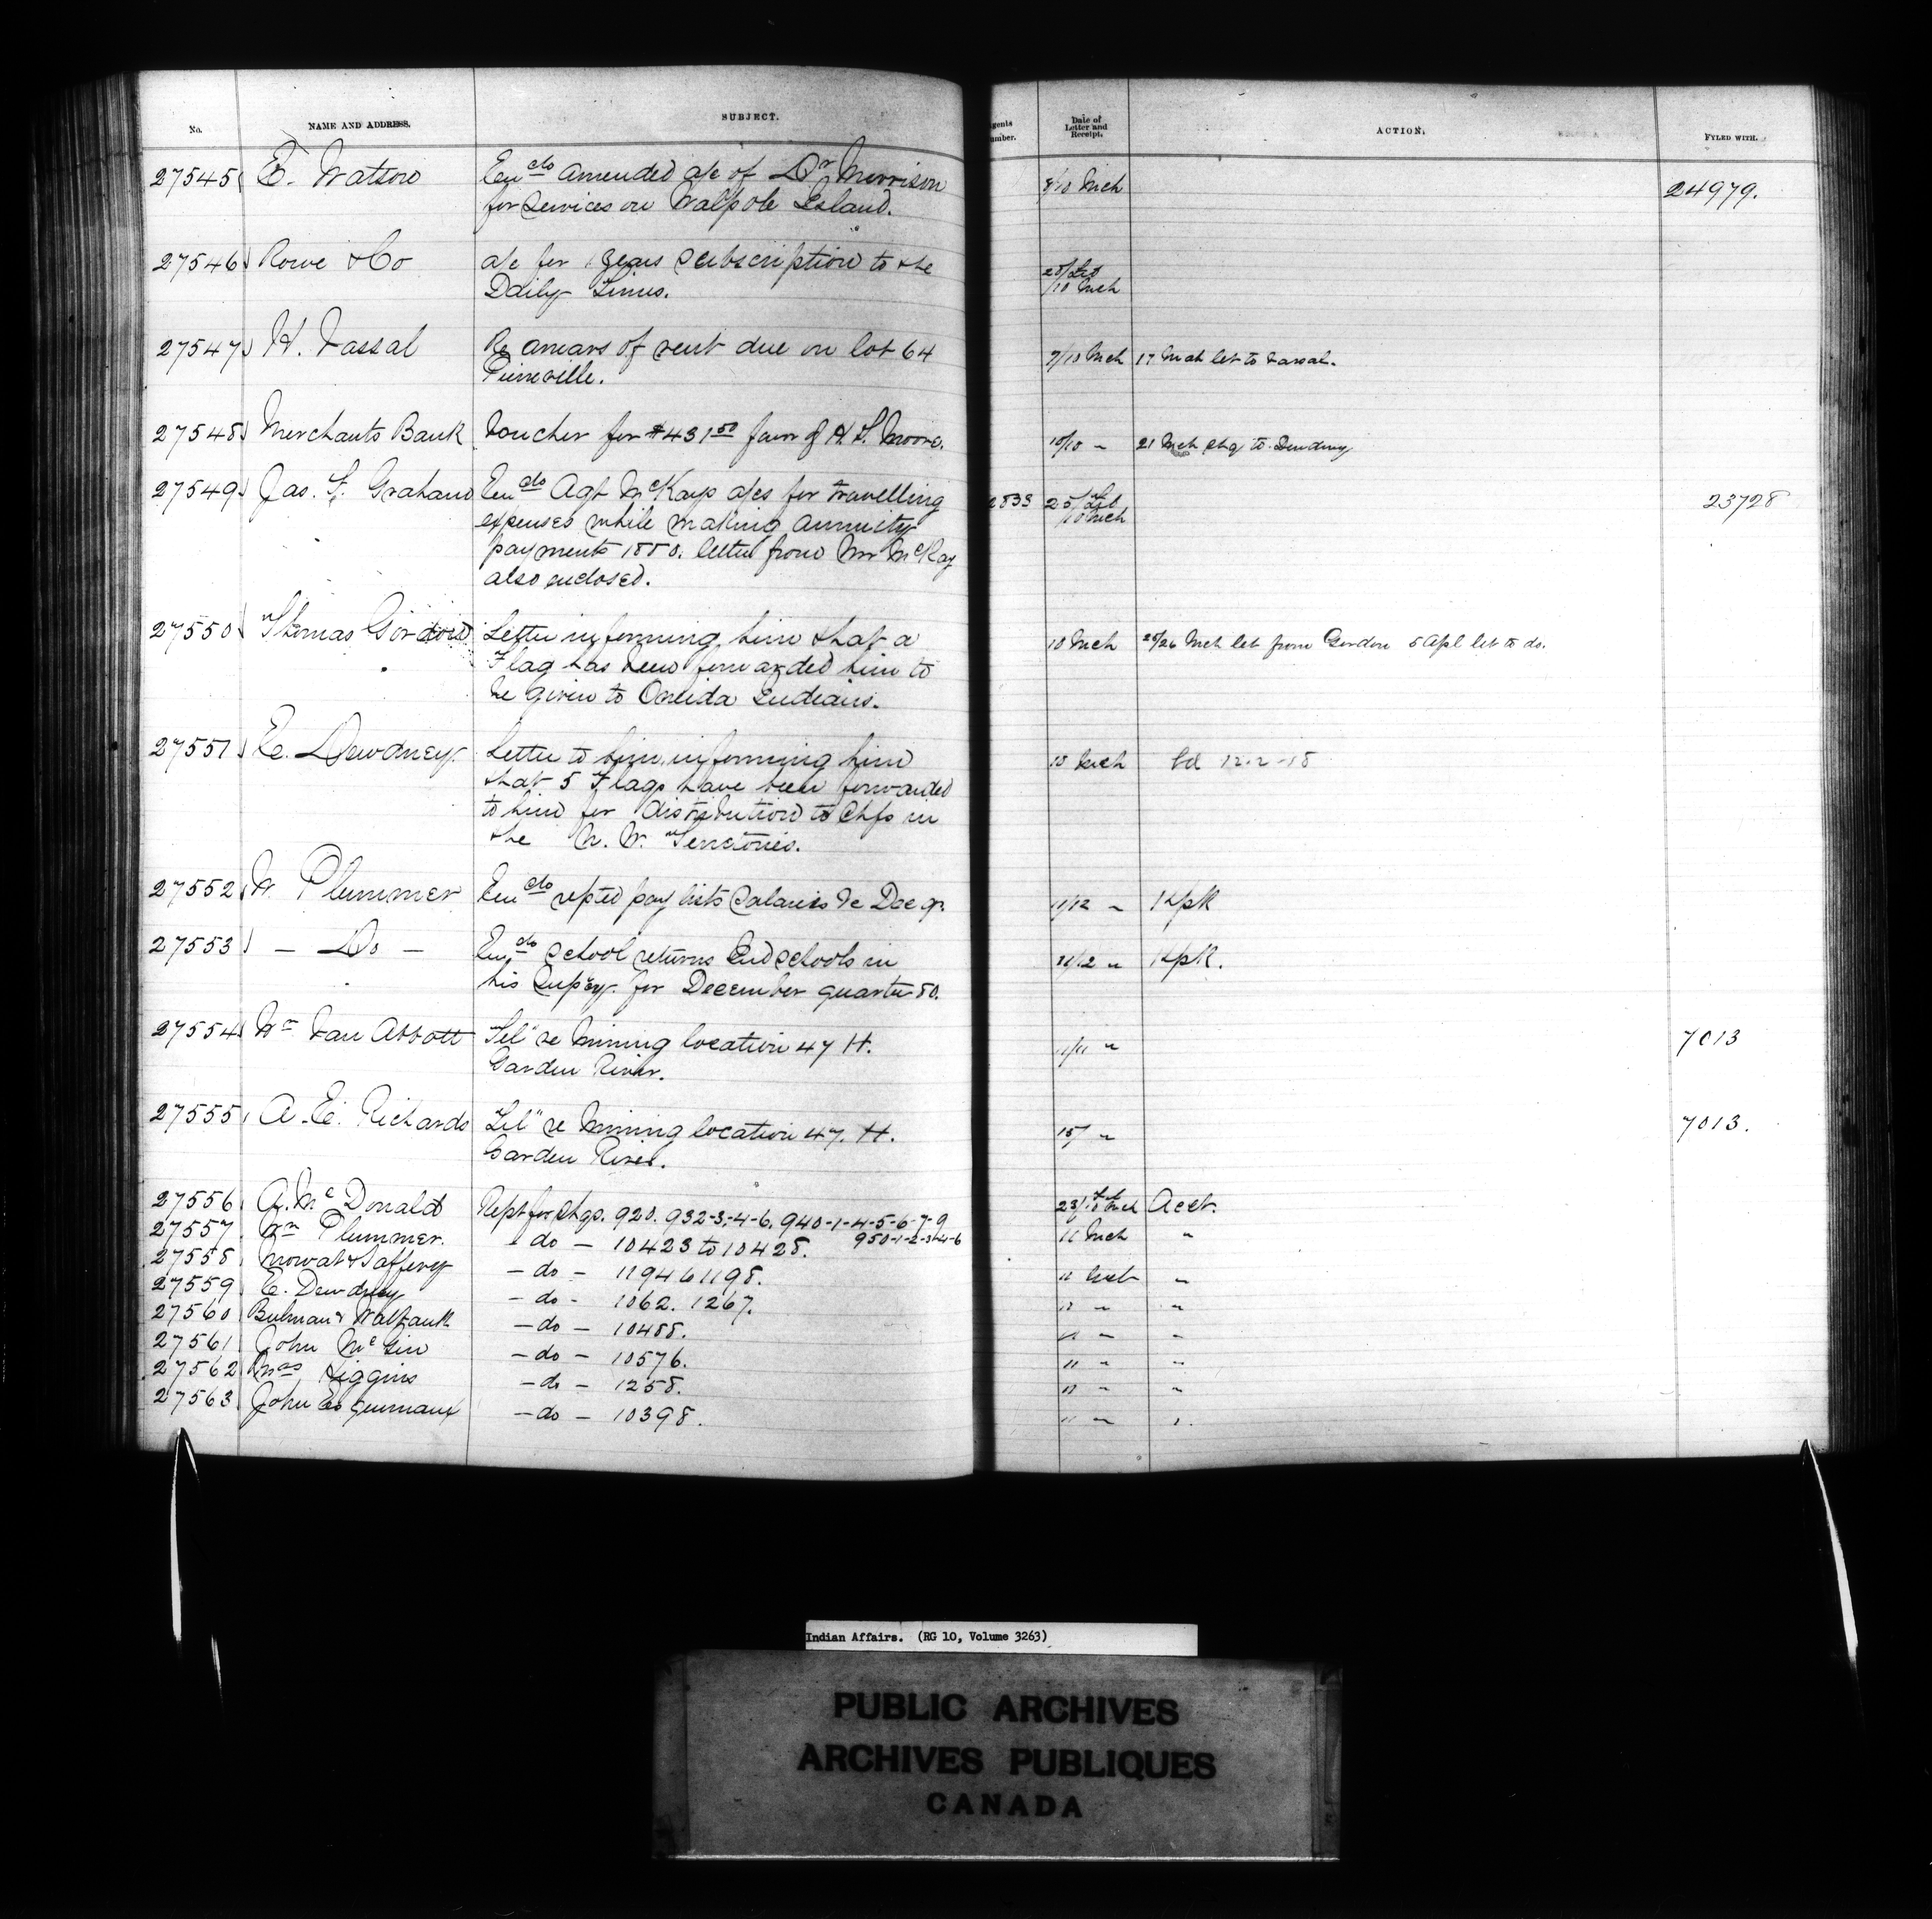 No. NAME AND ADDRESS. SUBJECT. Agents Number. Date of Letter and Receipt. ACTION. FYLED WITH.
27545 E. Watson Encdo amended a/c of Dr Morrison 8/10 Mch 24979.
for services on Walpole Island.
27546 Rowe & Co a/c for 1 years subscription to the 28/Feb
Daily Times. /10 Mch
27547 H. Vassal Re arrears of rent due on lot 64 7/10 Mch 17 Mch let to Vassal.
Pierreville.
27548 Merchants Bank Voucher for $431.50 favor of H. S. Moore. 10/10 " 21 Mch chq to Dewdney
27549 Jas. F. Graham Encdo Agt McKays a/cs for travelling 2833 25/Feb 23728
expenses while making annuity /10 Mch
payments 1880. letter from Mr McKay
also enclosed.
27550 Thomas Gordon Letter informing him that a 10 Mch 25/26 Mch let from Gordon 5 Apl let to do.
Flag has been forwarded him to
be given to Oneida Indians.
27551 E. Dewdney. Letter to him informing him 10 Mch bd 12-2-18
that 5 Flags have been forwarded
to him for distribution to Chfs in
the N. W. Territories.
27552 W. Plummer Encdo reptd pay lists Salaries &c Dec qr. 11/12 " Kpk
27553 — Do — Encdo school returns Ind schools in 11/12 " Kpk.
his Supcy. for December quarter 80.
27554 Wm Van Abbott Tel" re Mining location 47 H. 11/11 " 7013
Garden River.
27555 A. E. Richards Tel" re Mining location 47. H. 15/ " 7013.
Garden River.
27556 A. McDonald Rept for chqs. 920. 932-3-4-6. 940-1-4-5-6-7-9 23/Feb/10 Mch Acct.
950-1-2-3-4-6
27557 Wm Plummer. - do - 10423 to 10428. 11 Mch "
27558 Mowat & Saffery - do - 1194 & 1198. "
27559 E. Dewdney - do - 1062. 1267. " "
27560 Bulman & - do - 10488. " "
27561 John - do - 10576. 11 " "
27562 Mrs Higgins - do - 1258. 11 " "
27563 John Esquimaux - do - 10398. 11 " "
Indian Affairs. (RG 10, Volume 3263)
PUBLIC ARCHIVES
ARCHIVES PUBLIQUES
CANADA